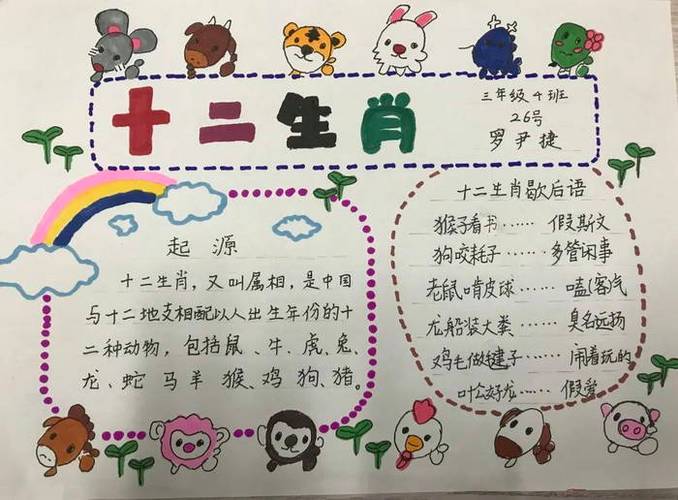 十二生肖
三年级4班
26号
罗尹捷
起源
十二生肖，又叫属相，是中国
与十二地支相配以人出生年份的十
二种动物，包括鼠、牛、虎、兔、
龙、蛇 马 羊 猴、鸡 狗、猪。
十二生肖歇后语
猴子看书……假斯文
狗咬耗子……多管闲事
老鼠啃皮球……嗑(客)气
龙船装大粪……臭名远扬
鸡毛做毽子……闹着玩的
叶公好龙……假爱